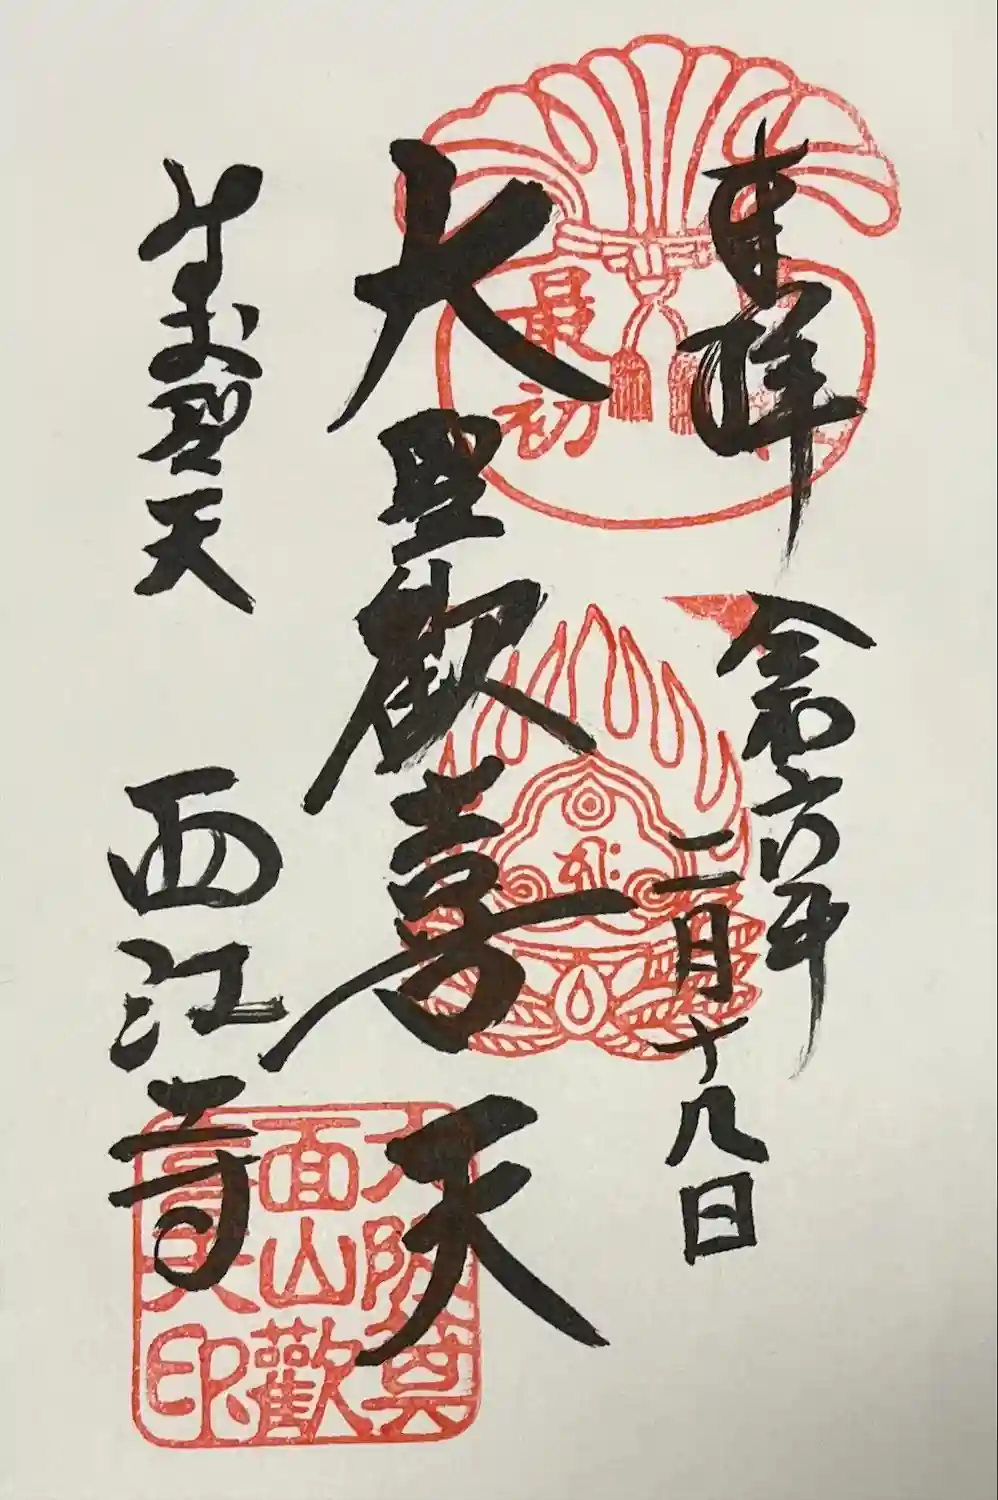 奉拝
令和六年
二月十八日
大聖歓喜天
箕面聖天
西江寺
最初
大阪箕
面山歡
喜天印